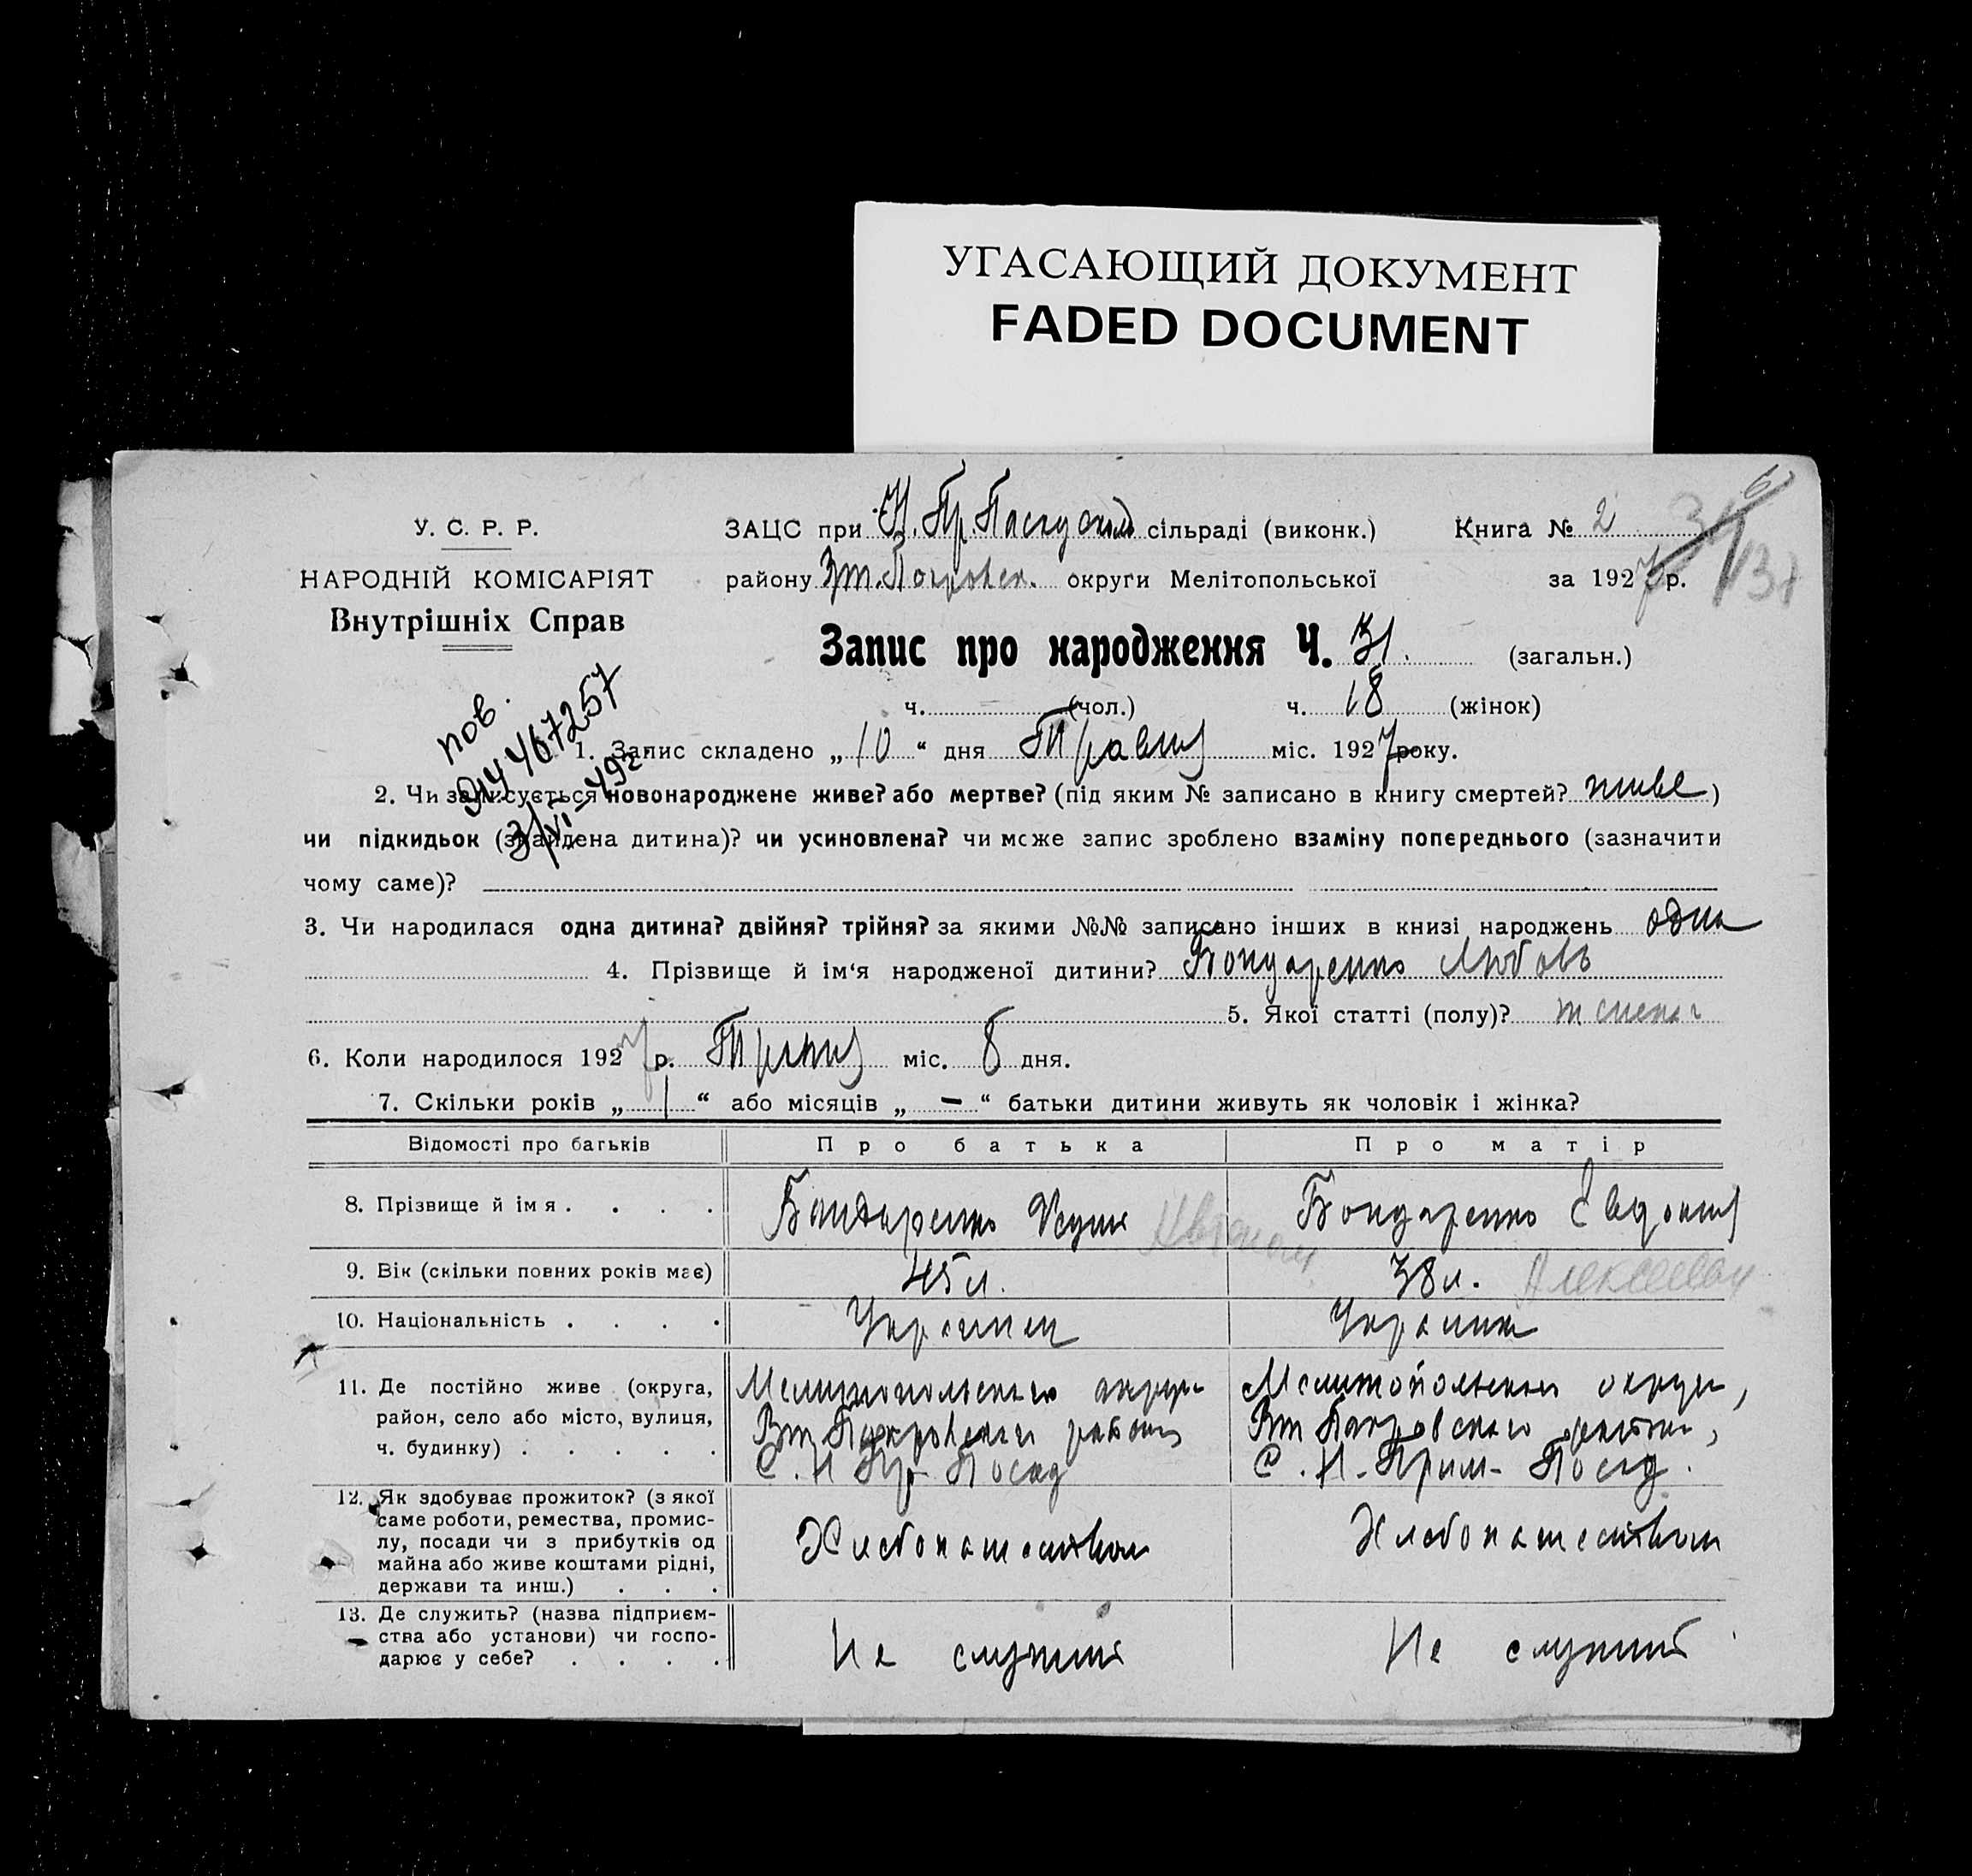 УГАСАЮЩИЙ ДОКУМЕНТ
FADED DOCUMENT
У. С. Р. Р.
НАРОДНІЙ КОМІСАРІЯТ
Внутрішніх Справ
ЗАЦС при Н. Пр. сільраді (виконк.)
Книга № 2
району округи Мелітопольської
за 1927 р.
Запис про народження Ч. 31. (загальн.)
ч. (чол.) ч. 18 (жінок)
пов.
4467257
1. Запис складено „10“ дня Травня міс. 1927 року.
2. Чи записується новонароджене живе? або мертве? (під яким № записано в книгу смертей? живе)
чи підкидьок (знайдена дитина)? чи усиновлена? чи може запис зроблено взаміну попереднього (зазначити
чому саме)?
3. Чи народилася одна дитина? двійня? трійня? за якими №№ записано інших в книзі народжень одна
4. Прізвище й ім‘я народженої дитини? Бондаренко Любовь
5. Якої статті (полу)?
6. Коли народилося 1927 р. Травня міс. 8 дня.
7. Скільки років „1“ або місяців „—“ батьки дитини живуть як чоловік і жінка?
Відомості про батьків Про батька Про матір
8. Прізвище й імя . . . . Бондаренко Бондаренко
9. Вік (скільки повних років має) 45 л. 38 л. Алексеевн
10. Національність . . . . Украинец Украинка
11. Де постійно живе (округа, Мелитопольского округи Мелитопольского округи,
район, село або місто, вулиця, района района,
ч. будинку) . . . . . С. Н Пр- Посад С. Н. Прим- Посад.
12. Як здобуває прожиток? (з якої
саме роботи, ремества, промис-
лу, посади чи з прибутків од
майна або живе коштами рідні,
держави та инш.) . . .
Хлебопашеством Хлебопашеством
13. Де служить? (назва підприєм-
ства або установи) чи госпо-
дарює у себе? . . . .
Не служит Не служит